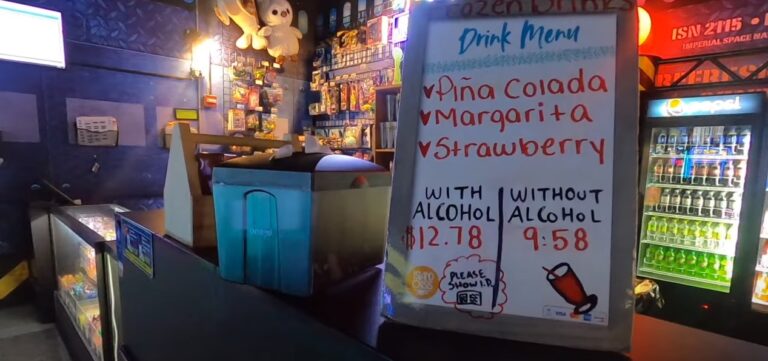 Frozen Drinks
Drink Menu
Piña Colada
Margarita
Strawberry
WITH
ALCOHOL
$12.78
WITHOUT
ALCOHOL
9:58
PLEASE
SHOW I.D.
VISA
pepsi
ISN-2115
IMPERIAL SPACE